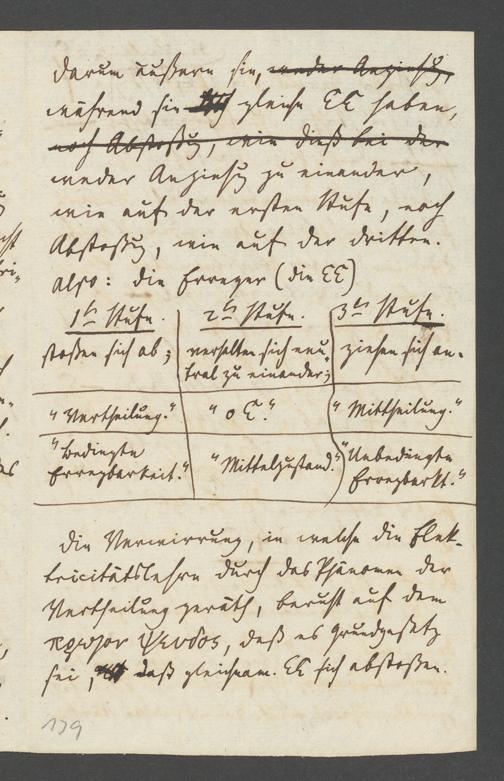 darum äußern sie, weder Anziehg,
während sie gleiche EE haben,
noch Abstoßg, wie dieß bei der
weder Anziehg zu einander,
wie auf der ersten Stufe, noch
Abstoßg, wie auf der dritten.
also: die Erreger (die EE)
1te Stufe. 2te Stufe. 3te Stufe.
stoßen sich ab; verhalten sich neu- ziehen sich an.
tral zu einander;
"Vertheilung." "o E." "Mittheilung."
"Bedingte "Unbedingte
Erregbarkeit." "Mittelzustand." Erregbarkt."
Die Verwirrung, in welche die Elek-
tricitätslehre durch das Phänomen der
Vertheilung geräth, beruht auf dem
πρωτον ψευδος, daß es Grundgesetz
sei, daß gleichnam. EE sich abstoßen.
179